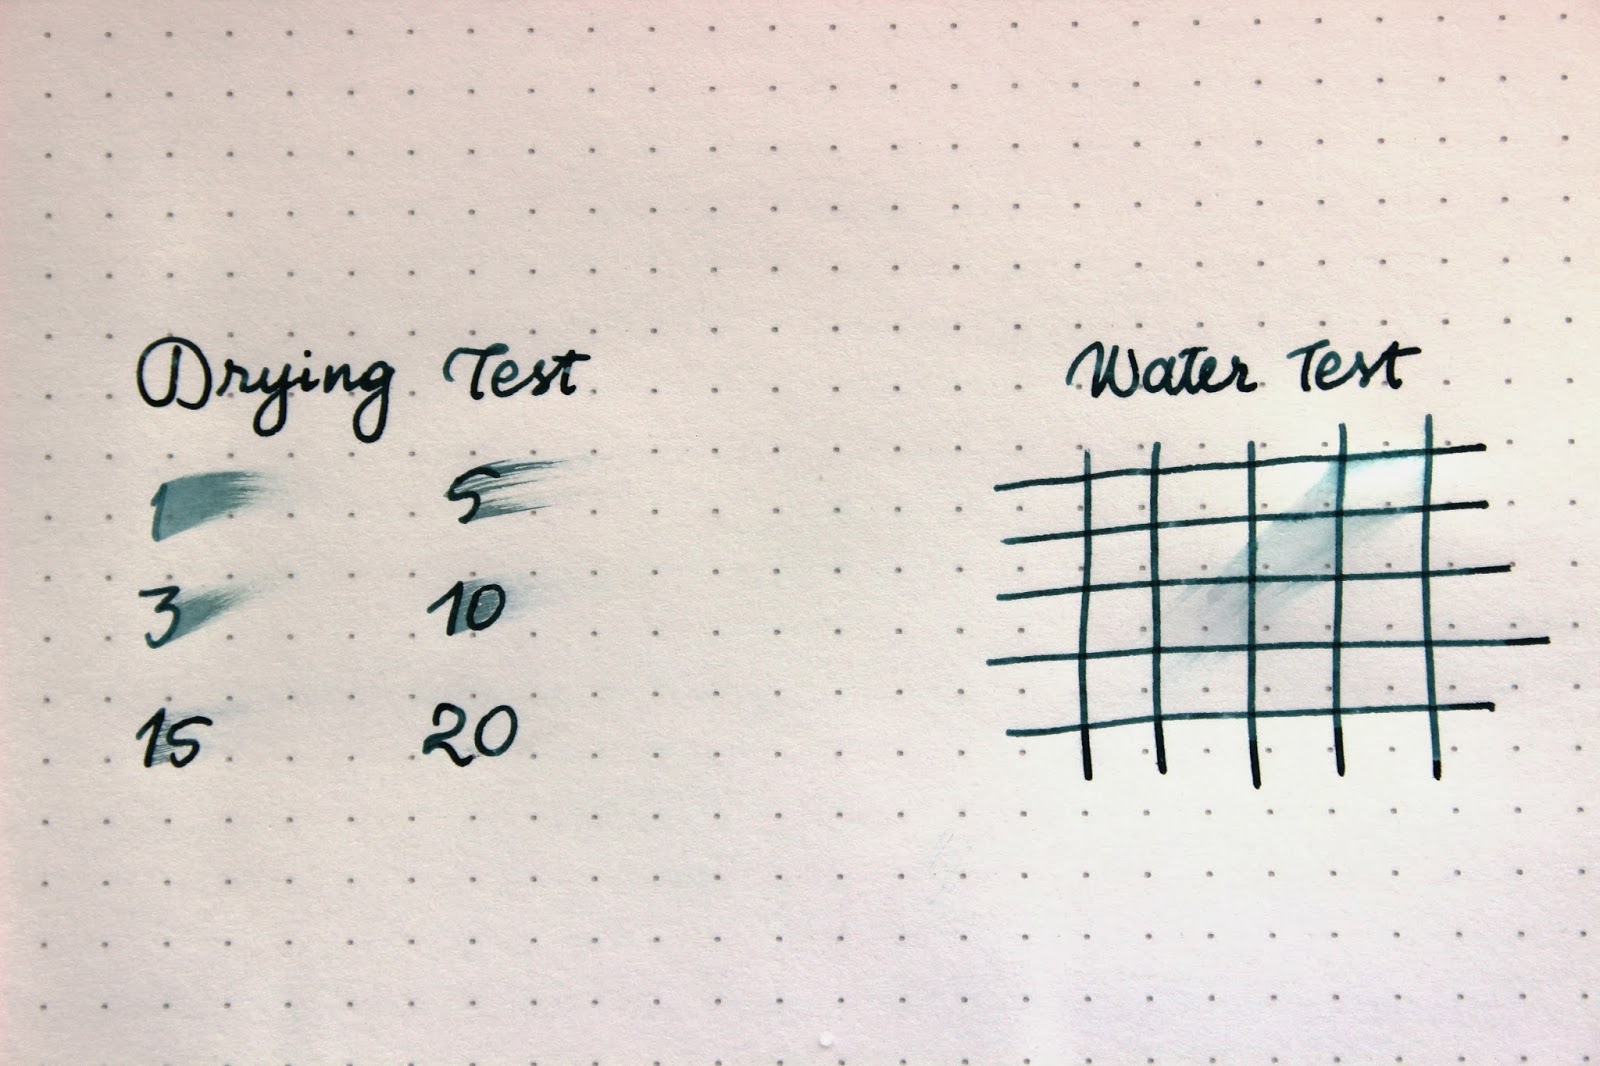 Drying Test
Water Test
1 5
3 10
15 20